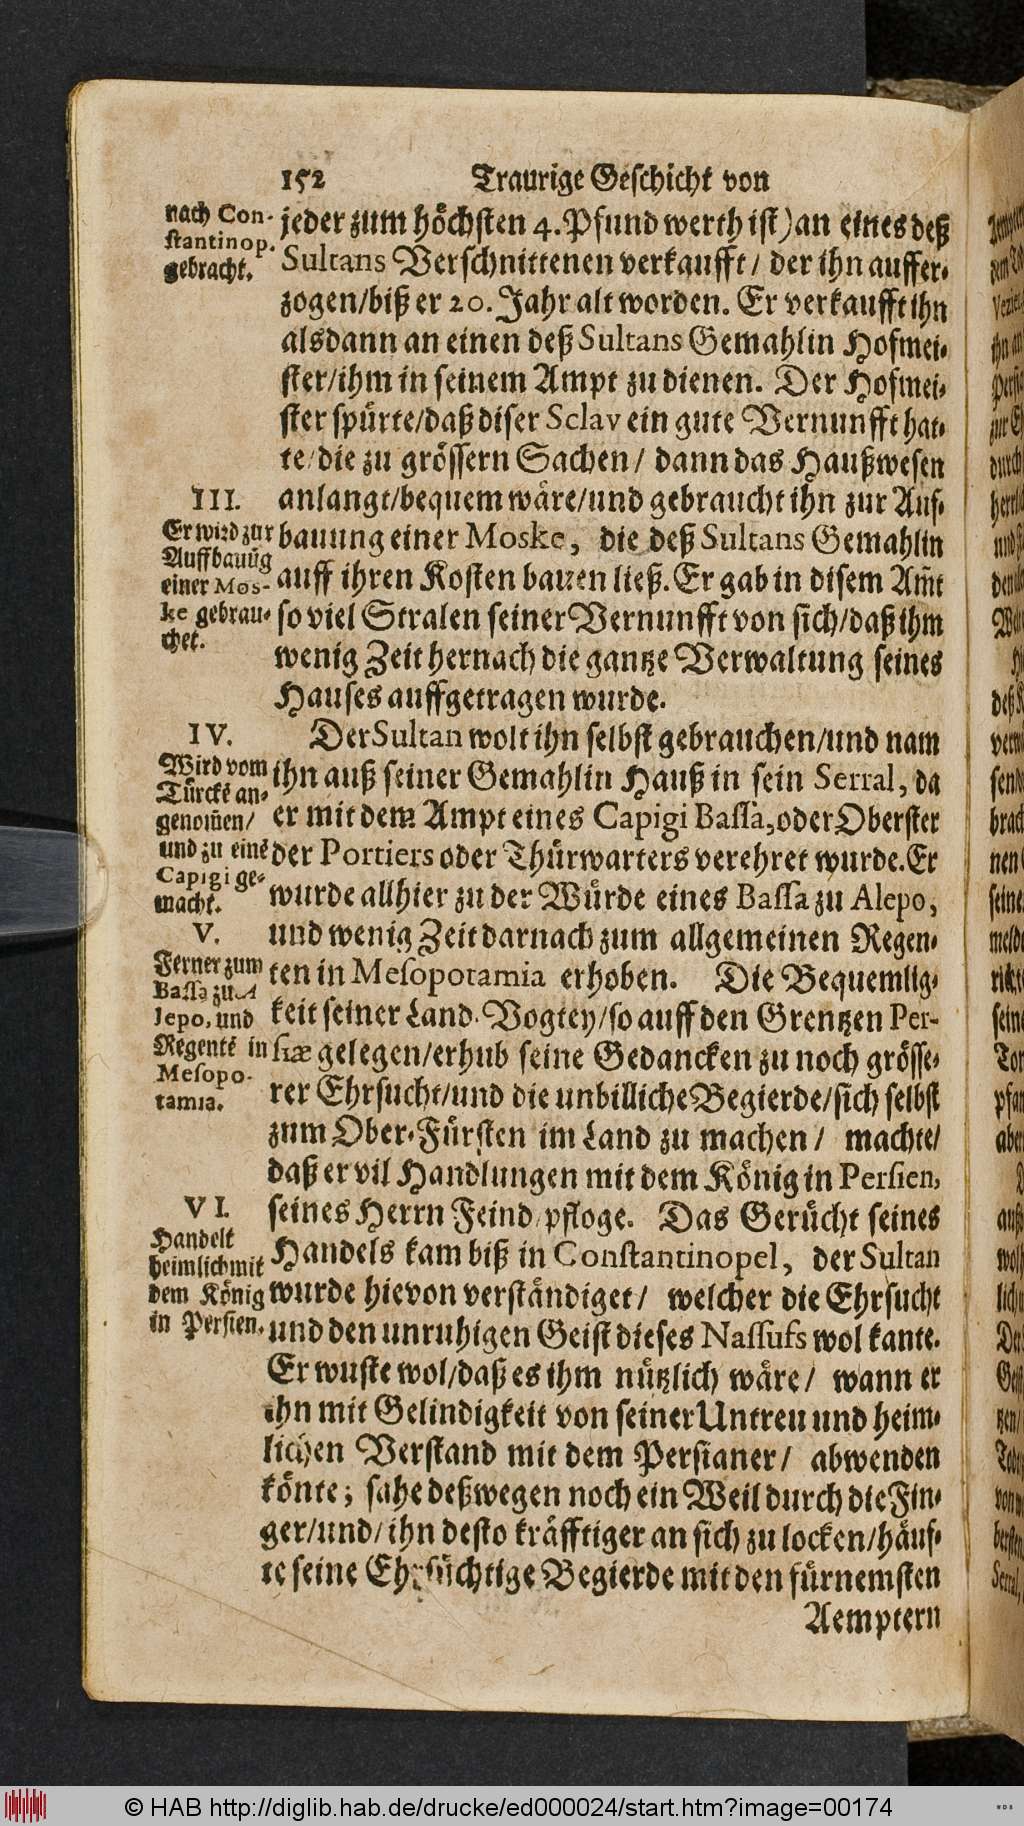 152 Traurige Geschicht von
nach Con-
stantinop.
gebracht.
jeder zum höchsten 4. Pfund werth ist) an eines deß
Sultans Verschnittenen verkaufft / der ihn auffer-
zogen/biß er 20. Jahr alt worden. Er verkaufft ihn
alsdann an einen deß Sultans Gemahlin Hofmei-
ster/ihm in seinem Ampt zu dienen. Der Hofmei-
ster spürte/daß diser Sclav ein gute Vernunfft hat-
te/die zu grössern Sachen / dann das Haußwesen
anlangt/bequem wäre/und gebraucht ihn zur Auf-
III.
Er wird zur
Auffbauūg
einer Mos-
ke gebrau-
chet.
bauung einer Moske, die deß Sultans Gemahlin
auff ihren Kosten bauen ließ. Er gab in disem Am̄t
so viel Stralen seiner Vernunfft von sich/daß ihm
wenig Zeit hernach die gantze Verwaltung seines
Hauses auffgetragen wurde.
IV.
Wird vom
Türckē an-
genom̄en/
und zu einē
Capigi ge-
macht.
Der Sultan wolt ihn selbst gebrauchen/und nam
ihn auß seiner Gemahlin Hauß in sein Serral, da
er mit dem Ampt eines Capigi Bassà, oder Oberster
der Portiers oder Thürwarters verehret wurde. Er
wurde allhier zu der Würde eines Bassa zu Alepo,
V.
Ferner zum
Bassa zu A
lepo, und
Regentē in
Mesopo-
tamia.
und wenig Zeit darnach zum allgemeinen Regen-
ten in Mesopotamia erhoben. Die Bequemlig-
keit seiner Land-Vogtey/so auff den Grentzen Per-
siæ gelegen/erhub seine Gedancken zu noch grösse-
rer Ehrsucht/und die unbilliche Begierde/sich selbst
zum Ober-Fürsten im Land zu machen / machte/
daß er vil Handlungen mit dem König in Persien,
VI.
Handelt
heimlich mit
dem König
in Persien.
seines Herrn Feind/pfloge. Das Gerücht seines
Handels kam biß in Constantinopel, der Sultan
wurde hievon verständiget / welcher die Ehrsucht
und den unruhigen Geist dieses Nassufs wol kante.
Er wuste wol/daß es ihm nützlich wäre / wann er
ihn mit Gelindigkeit von seiner Untreu und heim-
lichen Verstand mit dem Persianer / abwenden
könte; sahe deßwegen noch ein Weil durch die Fin-
ger/und/ihn desto kräfftiger an sich zu locken/häuf-
te seine Ehrsüchtige Begierde mit den fürnemsten
Aemptern
© HAB http://diglib.hab.de/drucke/ed000024/start.htm?image=00174